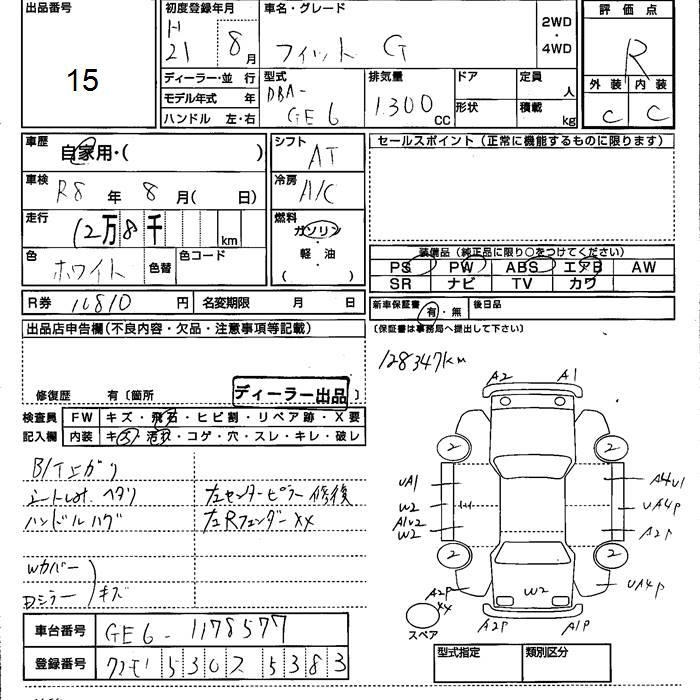 出品番号 初度登録年月 車名・グレード 2WD・4WD 評価点
15
H21 8月 フィット G R
ディーラー・並行 型式 排気量 ドア 定員 人 外装 内装
モデル年式 年 DBA-GE6 1.300 CC 形状 積載 kg C C
ハンドル 左・右
車歴 自家用・( ) シフト AT セールスポイント(正常に機能するものに限ります)
車検 R8年 8月( 日) 冷房 A/C
走行 12万8千 km 燃料 ガソリン・軽油・( )
色 ホワイト 色替 色コード
装備品(純正品に限り○をつけてください)
PS PW ABS エアB AW
SR ナビ TV カワ
R券 10810 円 名変期限 月 日 新車保証書 有・無 後日品
(保証書は事務局へ提出して下さい)
出品店申告欄(不良内容・欠品・注意事項等記載)
128347km
修復歴 有〔箇所 〕 ディーラー出品
検査員記入欄 FW キズ・飛石・ヒビ割・リペア跡・X要
内装 キズ・汚れ・コゲ・穴・スレ・キレ・破レ
A2 A1
2 2
シートしみ、ヘタリ 左センターピラー修後
ハンドルハゲ 左Rフェンダー XX
UA1 W2 A1U2 W2
A4U1 UA4P A2P
2 2
Wカバー
Dミラー キズ
A2P XX W2 UA4P
スペア A2P A1P
車台番号 GE6-1178577
登録番号 5302 5383
型式指定 類別区分